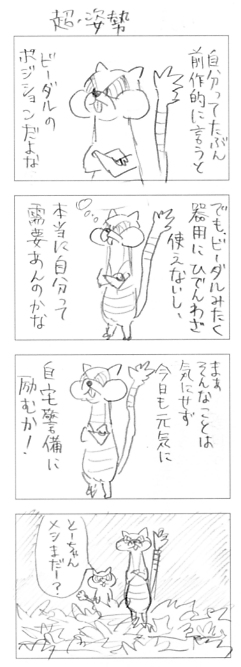 超・姿勢
自分ってたぶん
前作的に言うと
ビーダルの
ポジションだよな
でも、ビーダルみたく
器用にひでんわざ
使えないし、
本当に自分って
需要あんのかな
まぁ
そんなことは
気にせず
今日も元気に
自宅警備に
励むか!
とーちゃん
メシまだー?